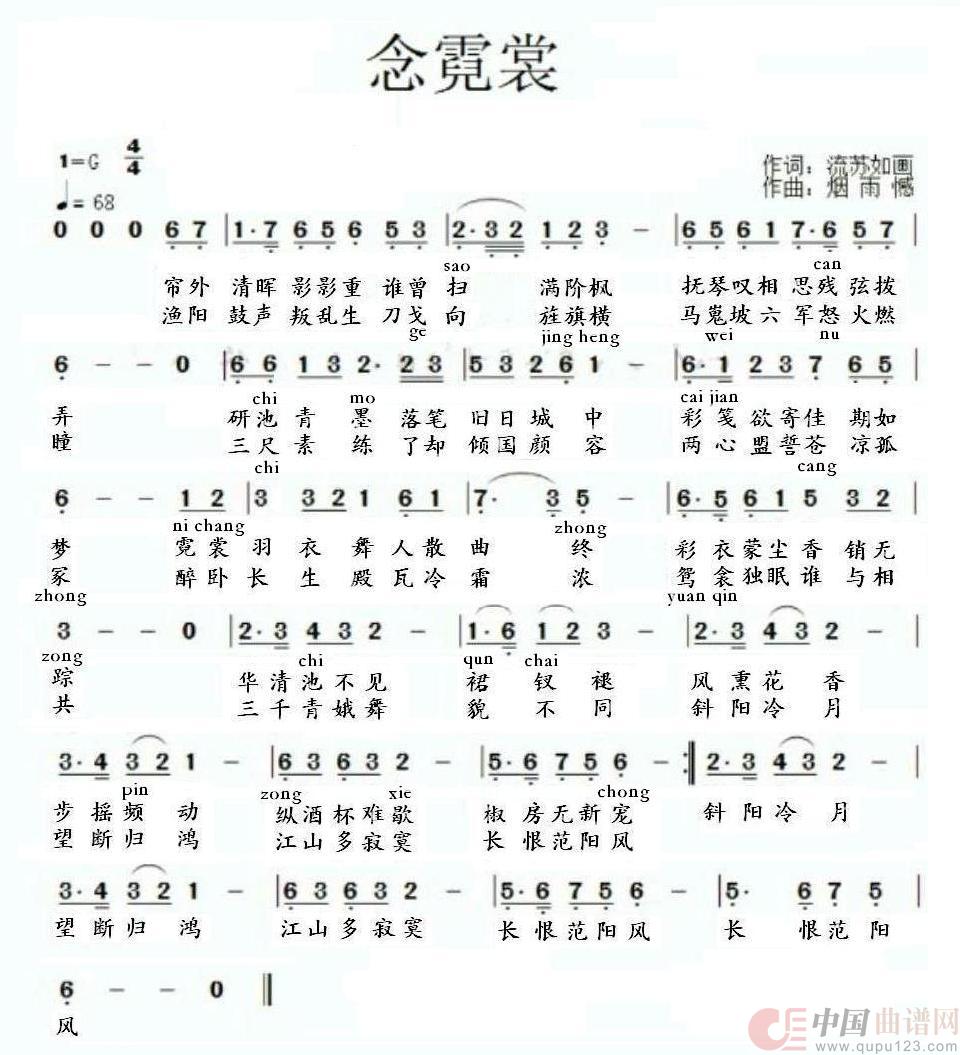 念霓裳
1=G 4/4
作词：流苏如画
♩= 68
作曲：烟 雨 憾
0 0 0 6 7 | 1· 7 6 5 6 5 3 | 2· 3 2 1 2 3 － | 6 5 6 1 7· 6 5 7 |
sao can
帘外 清晖 影影重 谁曾 扫 满阶枫 抚琴叹相 思残 弦拨
渔阳 鼓声 叛乱生 刀戈 向 旌旗横 马嵬坡六 军怒 火燃
ge jing heng wei nu
6 － － 0 | 6 6 1 3 2· 2 3 | 5 3 2 6 1 － | 6· 1 2 3 7 6 5 |
chi mo cai jian
弄 研池 青 墨 落笔 旧日 城 中 彩 笺欲寄佳 期如
瞳 三尺 素 练 了却 倾国 颜 容 两 心盟誓苍 凉孤
chi cang
6 － － 1 2 | 3 3 2 1 6 1 | 7· 3 5 － | 6· 5 6 1 5 3 2 |
ni chang zhong
梦 霓裳 羽 衣 舞 人散 曲 终 彩 衣蒙尘香 销无
冢 醉卧 长 生 殿 瓦冷 霜 浓 鸳 衾独眠谁 与相
zhong yuan qin
3 － － 0 | 2· 3 4 3 2 － | 1· 6 1 2 3 － | 2· 3 4 3 2 － |
zong chi qun chai
踪 华清池不见 裙 钗 褪 风 熏花 香
共 三千青娥舞 貌 不 同 斜 阳冷 月
3· 4 3 2 1 － | 6 3 6 3 2 － | 5· 6 7 5 6 － :| 2· 3 4 3 2 － |
pin zong xie chong
步 摇频 动 纵酒杯难歇 椒 房无新宠 斜 阳冷 月
望 断归 鸿 江山多寂寞 长 恨范阳风
3· 4 3 2 1 － | 6 3 6 3 2 － | 5· 6 7 5 6 － | 5· 6 7 5 |
望 断归 鸿 江山多寂寞 长 恨范阳风 长 恨范阳
6 － － 0 ‖
风
中国曲谱网
www.qupu123.com